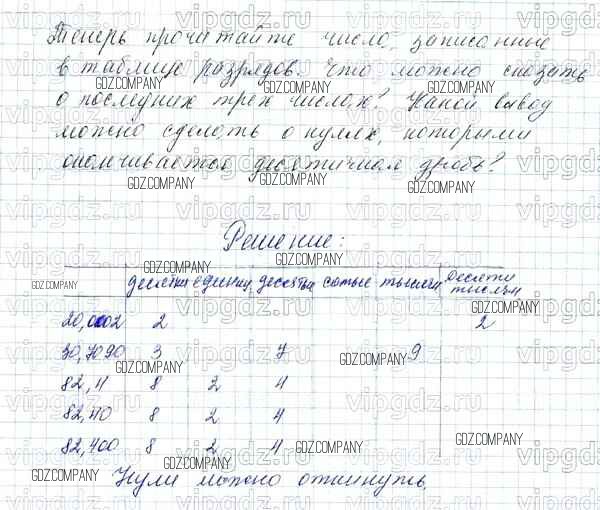 Теперь прочитайте числа, записанные
в таблице разрядов. Что можно сказать
о последних трех числах? Какой вывод
можно сделать о нулях, которыми
оканчивается десятичная дробь?
Решение:
десятки единиц десятых сотые тысячн десяти тысячн
20,0002 2 2
30,7090 3 7 9
82,4 8 2 4
82,40 8 2 4
82,400 8 2 4
Нули можно откинуть.
vipgdz.ru
GDZ.COMPANY